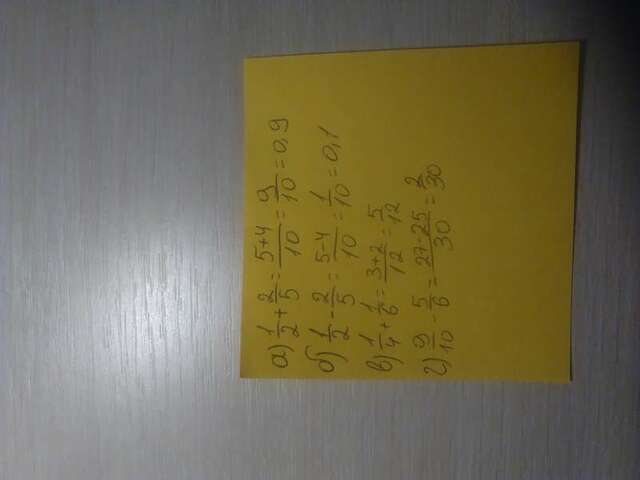 а) 1/2 + 2/5 = 5+4/10 = 9/10 = 0,9
б) 1/2 - 2/5 = 5-4/10 = 1/10 = 0,1
в) 1/4 + 1/6 = 3+2/12 = 5/12
г) 9/10 - 5/6 = 27-25/30 = 2/30